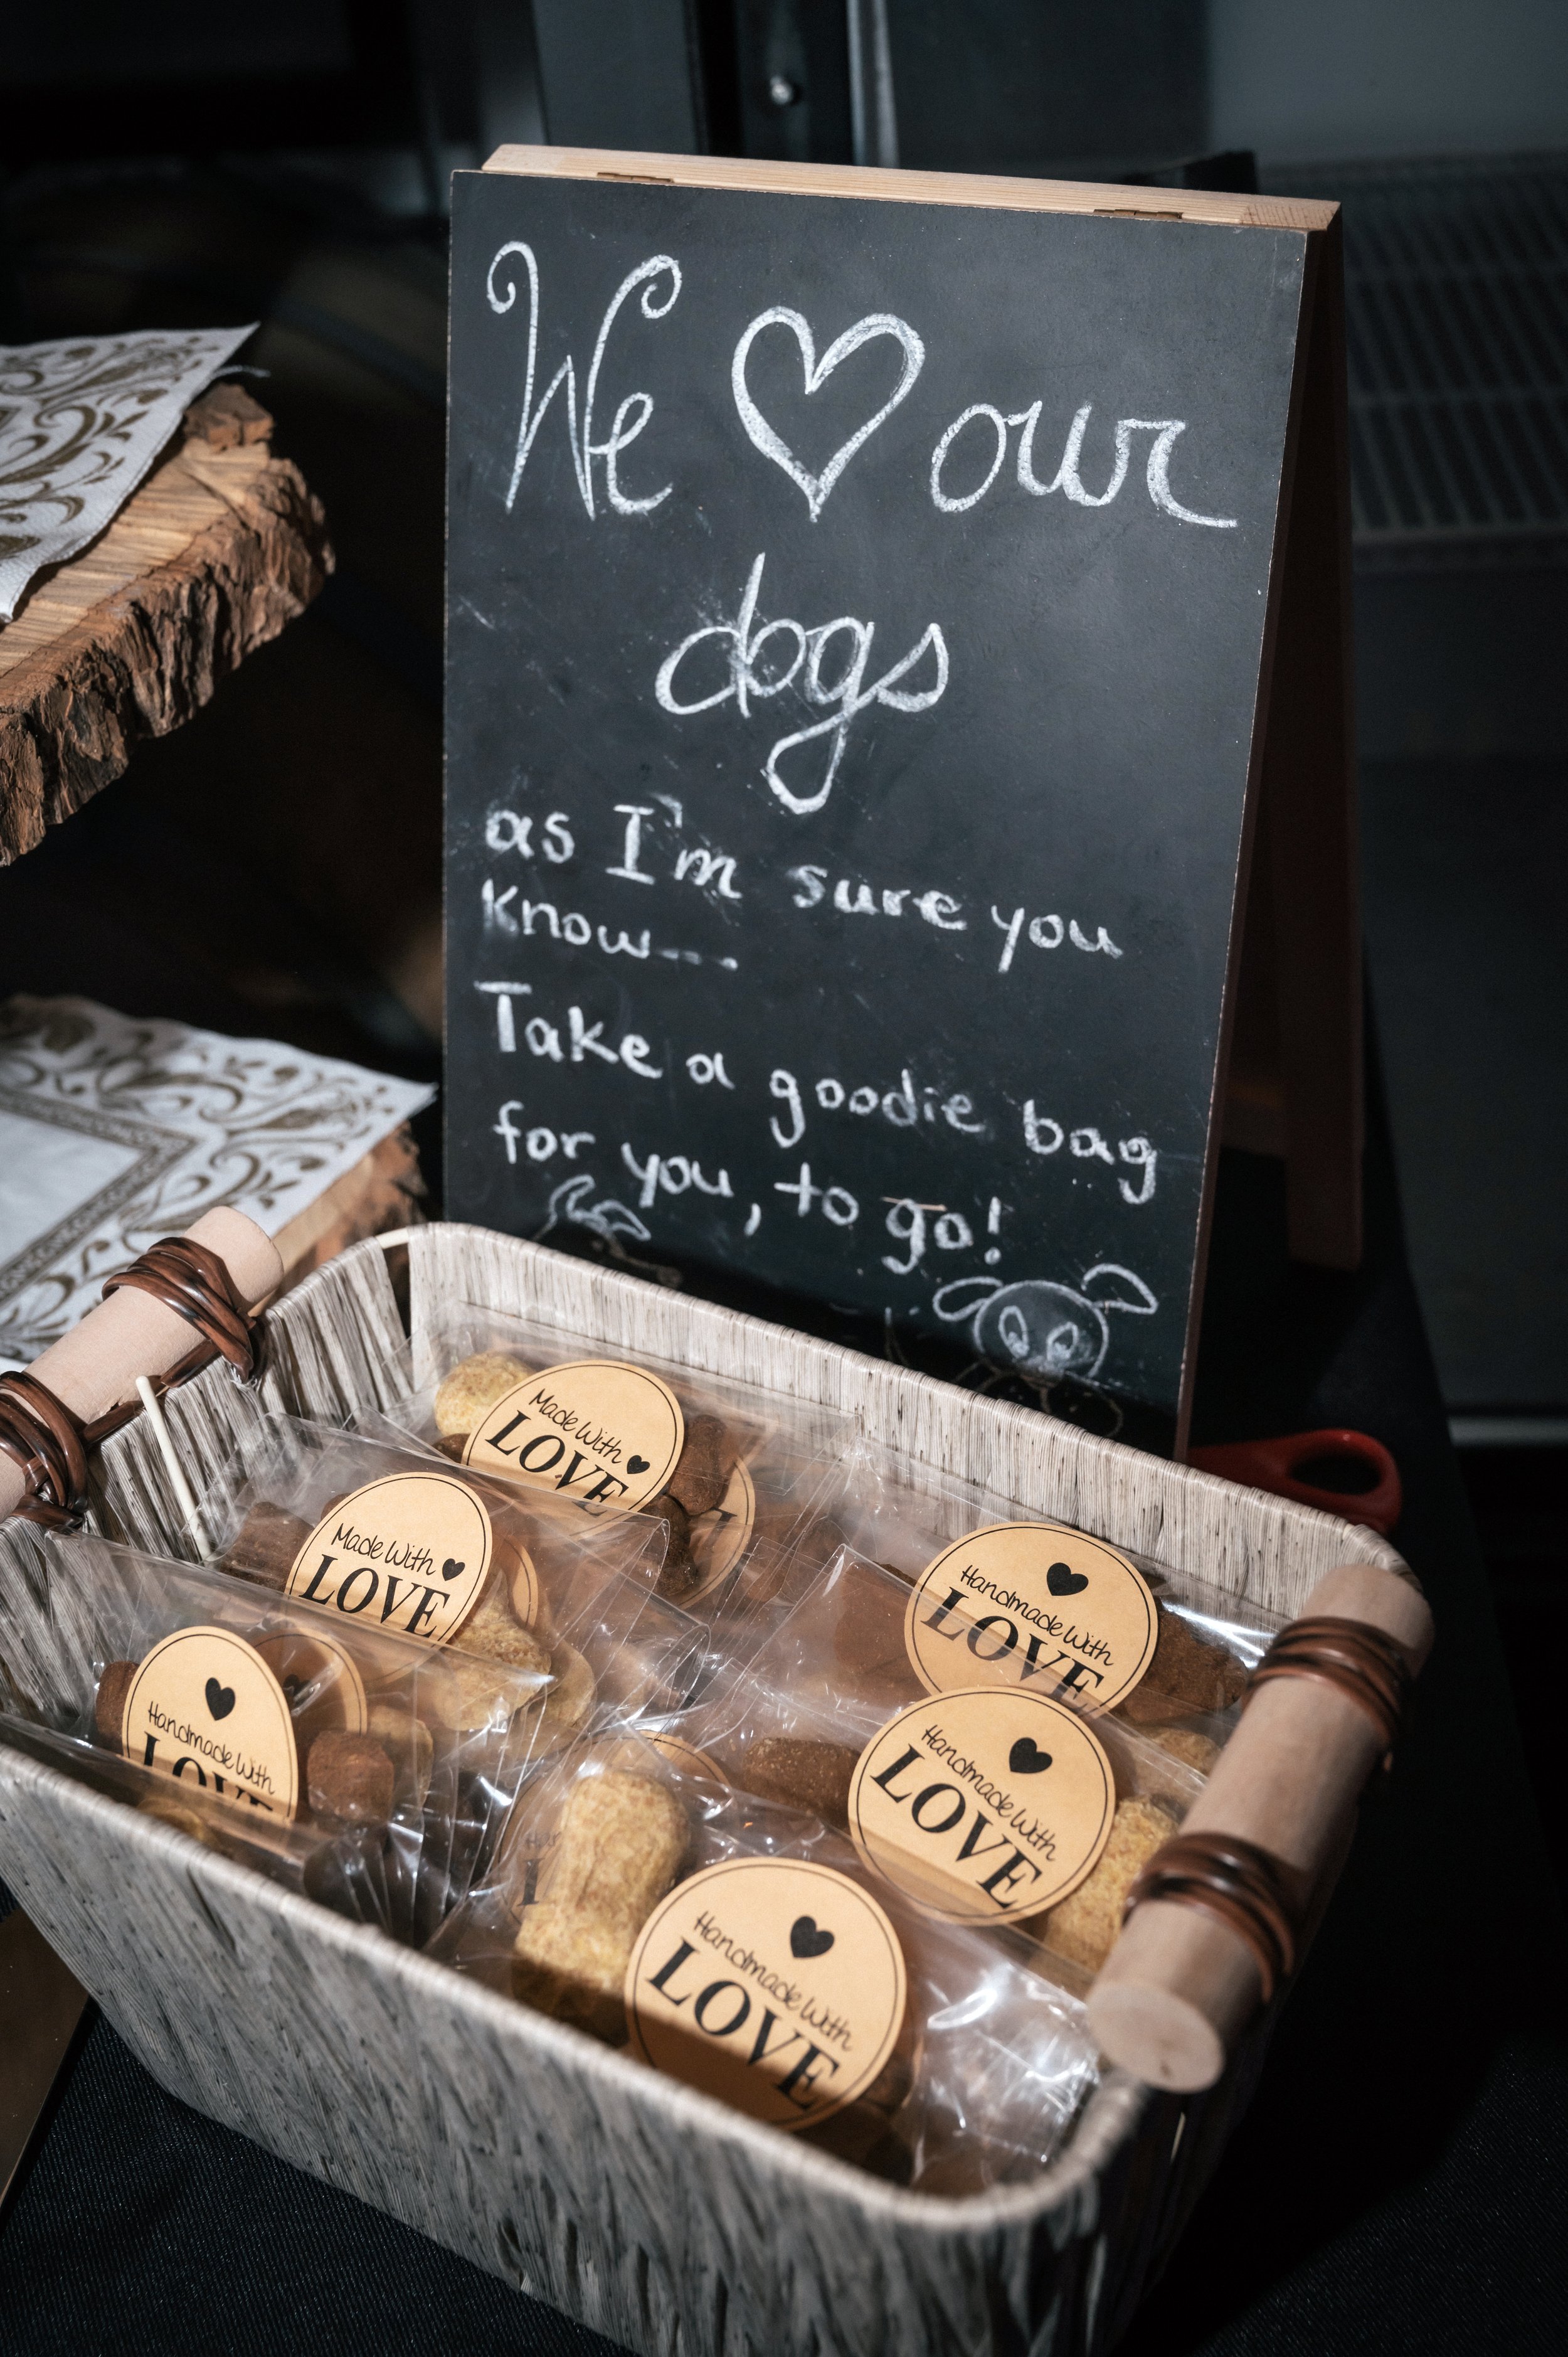 We ♡ our
dogs
as I'm sure you
know...
Take a goodie bag
for you, to go!
Made With ♥
LOVE
Made With ♥
LOVE
♥
Handmade With
LOVE
♥
Handmade With
LOVE
♥
Handmade With
LOVE
♥
Handmade With
LOVE